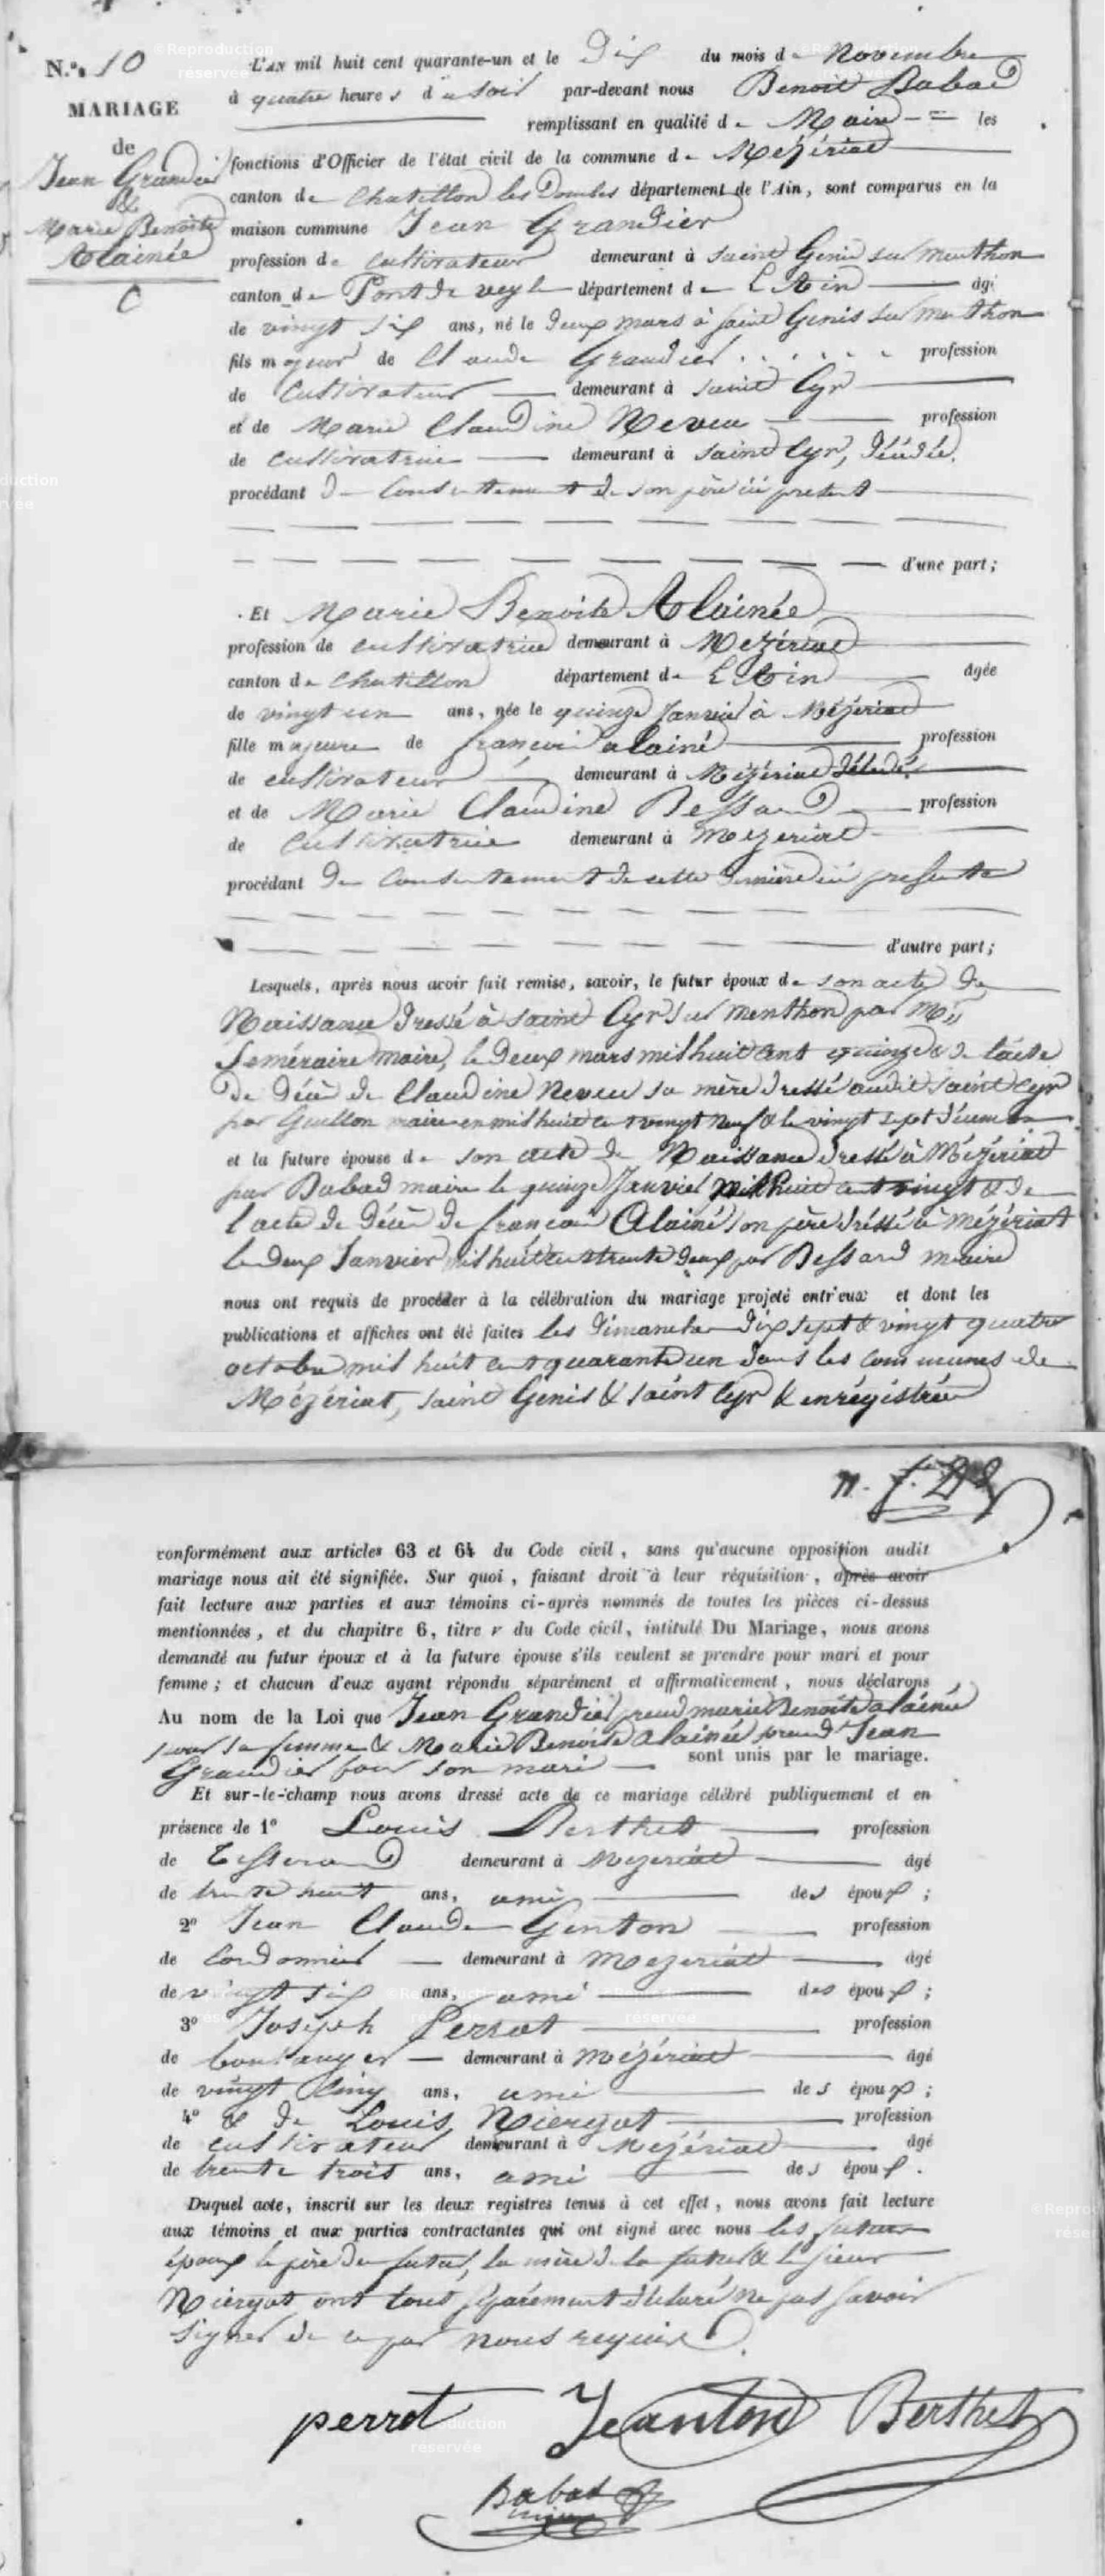 N.º 10
MARIAGE
de
Jean Grandier
&
Marie Benoite
Alainée
L'AN mil huit cent quarante-un et le Dix du mois de Novembre
à quatre heures du soir par-devant nous Benoit Babad
remplissant en qualité de Maire les
fonctions d'Officier de l'état civil de la commune de Mézériat
canton de Chatillon les Dombes département de l'Ain, sont comparus en la
maison commune Jean Grandier
profession de cultivateur demeurant à saint Genis sur menthon
canton de Pont de veyle département de L'Ain âgé
de vingt six ans, né le deux mars à saint Genis sur menthon
fils majeur de Claude Grandier profession
de Cultivateur demeurant à saint Cyr
et de Marie Claudine Neveu profession
de cultivatrice demeurant à saint Cyr, décédée.
procédant du Consentement de son père ici present
d'une part;
Et Marie Benoite Alainée
profession de cultivatrice demeurant à Mézériat
canton de Chatillon département de L'Ain âgée
de vingt un ans, née le quinze Janvier à Mézériat
fille majeure de françois alainé profession
de cultivateur demeurant à Mézériat décédé.
et de Marie Claudine Bessard profession
de Cultivatrice demeurant à mezeriat
procédant du Consentement de cette dernière ici presente
d'autre part;
Lesquels, après nous avoir fait remise, savoir, le futur époux de son acte de
Naissance dressé à saint Cyr sur menthon par Mr
maire, le deux mars mil huit cent quinze & de l'acte
de décès de Claudine Neveu sa mère dressé audit saint Cyr
par Guillon maire en mil huit cent vingt neuf & le vingt sept
et la future épouse de son acte de Naissance dressé à Mézériat
par Babad maire le quinze Janvier mil huit cent vingt & de
l'acte de décès de françois Alainé son père dressé à mézériat
le deux Janvier mil huit cent trente deux par Bessard maire
nous ont requis de procéder à la célébration du mariage projeté entr'eux et dont les
publications et affiches ont été faites les dimanches dix sept & vingt quatre
octobre mil huit cent quarante un dans les communes de
Mézériat, saint Genis & saint Cyr & enrégistrée
conformément aux articles 63 et 64 du Code civil, sans qu'aucune opposition audit
mariage nous ait été signifiée. Sur quoi, faisant droit à leur réquisition, après avoir
fait lecture aux parties et aux témoins ci-après nommés de toutes les pièces ci-dessus
mentionnées, et du chapitre 6, titre v du Code civil, intitulé Du Mariage, nous avons
demandé au futur époux et à la future épouse s'ils veulent se prendre pour mari et pour
femme; et chacun d'eux ayant répondu séparément et affirmativement, nous déclarons
Au nom de la Loi que Jean Grandier prend marie Benoite alainée
pour sa femme & Marie Benoite Alainée prend Jean
Grandier pour son mari sont unis par le mariage.
Et sur-le-champ nous avons dressé acte de ce mariage célébré publiquement et en
présence de 1º Louis Berthet profession
de Tisserand demeurant à Mezeriat âgé
de trente huit ans, ami des époux;
2º Jean Claude Genton profession
de Cordonnier demeurant à Mezeriat âgé
de vingt six ans, ami des époux;
3º Joseph Perrot profession
de boulanger demeurant à Mézériat âgé
de vingt cinq ans, ami des époux;
4º & de Louis Niergot profession
de cultivateur demeurant à Mézériat âgé
de trente trois ans, ami des époux.
Duquel acte, inscrit sur les deux registres tenus à cet effet, nous avons fait lecture
aux témoins et aux parties contractantes qui ont signé avec nous les futurs
époux le père du futur, la mère de la future & le sieur
Niergot ont tous séparément déclaré ne pas savoir
signer de ce par nous requis.
perrot Jeanton Berthet
Babad
maire